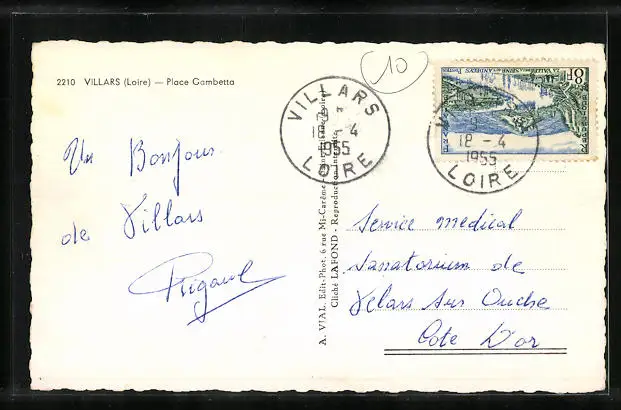 2210 VILLARS (Loire) — Place Gambetta
10
VILLARS
18 - 4
1955
LOIRE
8F
LA VALLÉE DE LA SEINE AUX ANDELYS
18 - 4
1955
LOIRE
Un Bonjour
de Villars
Rigaud
A. VIAL, Edit.-Phot. 6 rue Mi-Carême
Cliché LAFOND - Reproduction
Service médical
Sanatorium de
Velars sur Ouche
Cote D'or